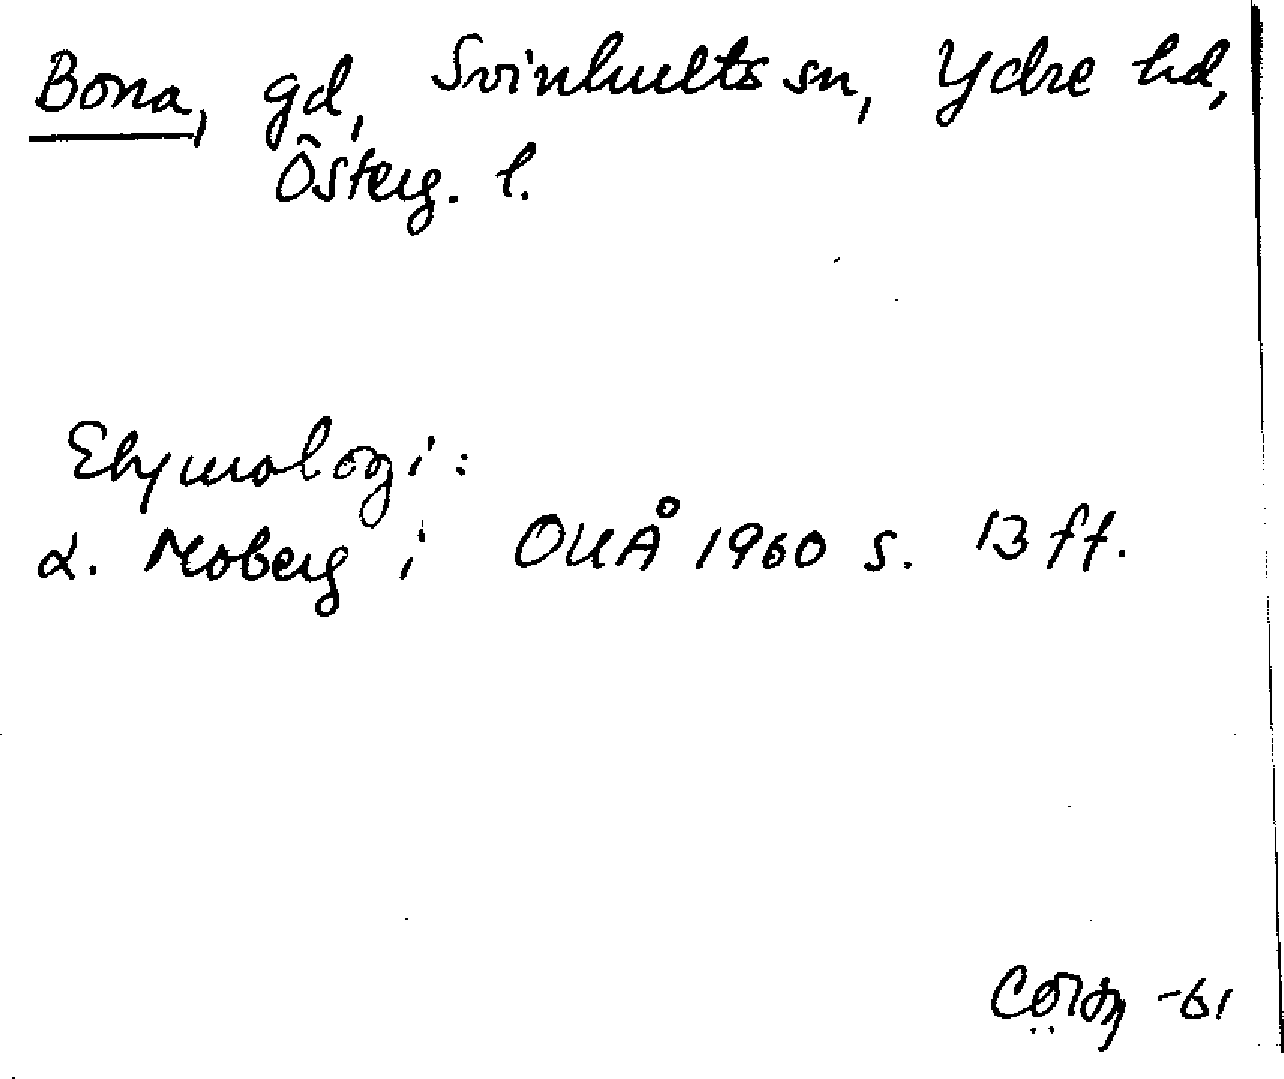 Bona, gd, Svinhults sn, Ydre hd,
Österg. l.
Etymologi:
L. Moberg i OUÅ 1960 s. 13 ff.
-61